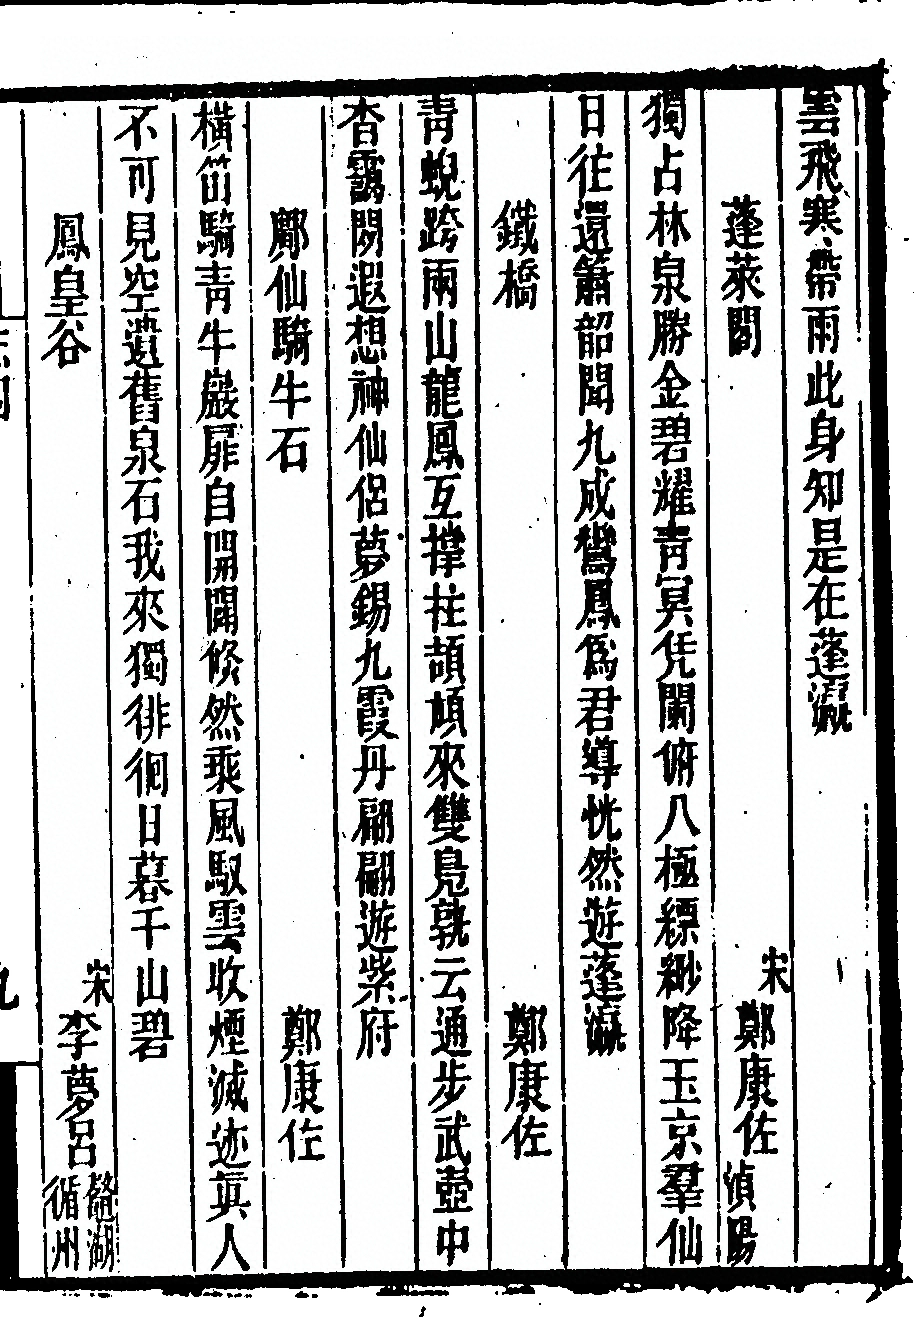 雲飛寒帶雨此身知是在蓬瀛
蓬萊閣 宋鄭康佐湞陽
獨占林泉勝金碧耀青冥凭闌俯八極縹緲降玉京羣仙
日往還簫韶聞九成鸞鳳爲君導恍然遊蓬瀛
鐵橋 鄭康佐
青蜺跨兩山龍鳳互撐柱頡頏來雙鳧孰云通步武壺中
杳靄閒遐想神仙侶夢錫九霞丹翩翩遊紫府
鄺仙騎牛石 鄭康佐
橫笛騎青牛巖扉自開閉倏然乘風馭雲收煙滅迹真人
不可見空遺舊泉石我來獨徘徊日暮千山碧
鳳皇谷 宋李夢呂龍湖循州